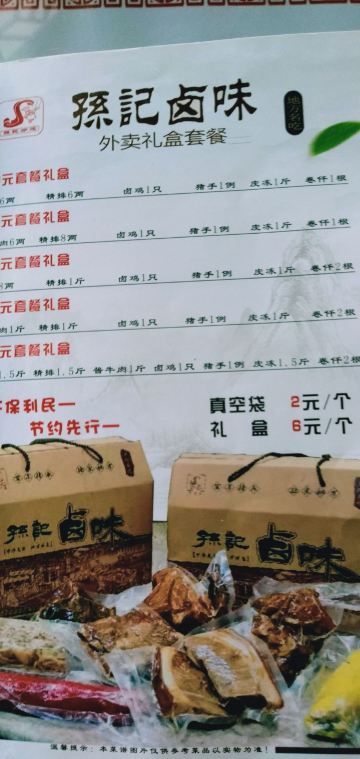 孫記卤味
地方名吃
外卖礼盒套餐
元套餐礼盒
6两 精排6两 卤鸡1只 猪手1例 皮冻1斤 卷仟1根
元套餐礼盒
肉6两 精排8两 卤鸡1只 猪手1例 皮冻1斤 卷仟1根
元套餐礼盒
8两 精排1斤 卤鸡1只 猪手1例 皮冻1斤 卷仟2根
元套餐礼盒
肉1斤 精排1斤 卤鸡1只 猪手1例 皮冻1斤 卷仟2根
元套餐礼盒
1.5斤 精排1.5斤 酱牛肉1斤 卤鸡1只 猪手1例 皮冻1.5斤 卷仟2根
保利民一
真空袋 2元/个
节约先行一
礼盒 6元/个
孫記卤味
孫記卤味
温馨提示：本菜谱图片仅供参考菜品以实物为准！